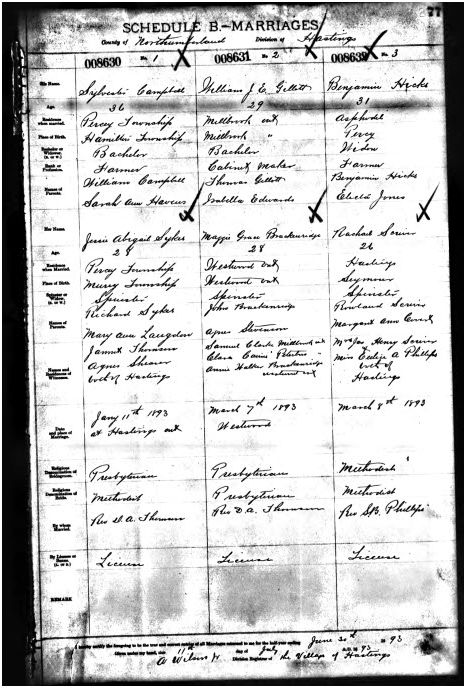 77
SCHEDULE B.—MARRIAGES
County of Northumberland Division of Hastings
008630 No. 1 008631 No. 2 No. 3
His Name. Sylvester Campbell William J. E. Gillott Benjamin Hicks
Age. 36 29 31
Residence when married. Percy Township Millbrook ont Asphodel
Place of Birth. Hamilton Township Millbrook " Percy
Bachelor or Widower (B. or W.) Bachelor Bachelor Widow
Rank or Profession. Farmer Cabinet Maker Farmer
Names of Parents. William Campbell Thomas Gillott Benjamin Hicks
Sarah Ann Isabella Edwards Jones
Her Name. Jessie Abigail Sykes Maggie Grace Brackenridge Rachael Scriver
Age. 28 28 26
Residence when Married. Percy Township Westwood ont Hastings
Place of Birth. Murray Township Westwood ont Seymour
Spinster or Widow. (S. or W.) Spinster Spinster Spinster
Names of Parents. Richard Sykes John Brackenridge Rowland Scriver
Mary Ann Langdon Agnes Stevenson Margaret Ann
Names and Residences of Witnesses. Thomson Samuel Clarke Millbrook ont Henry Scriver
Agnes Shearer Clara Peterboro Miss A Phillips
both of Hastings Annie Brackenridge both of
Westwood ont Hastings
Date and place of Marriage. Jany 11th 1893 March 7th 1893 March 8th 1893
at Hastings ont Westwood
Religious Denomination of Bridegroom. Presbyterian Presbyterian Methodist
Religious Denomination of Bride. Methodist Presbyterian Methodist
By whom Married. Rev D. A. Thomson Rev D. A. Thomson Rev S.B. Phillips
By License or Banns. (L. or B.) License License License
REMARK
I hereby certify the foregoing to be the true and correct entries of all Marriages returned to me for the half-year ending June 30th 1893
Given under my hand, this 11th day of July A.D. 1893
A Wilson Jr Division Registrar of the Village of Hastings